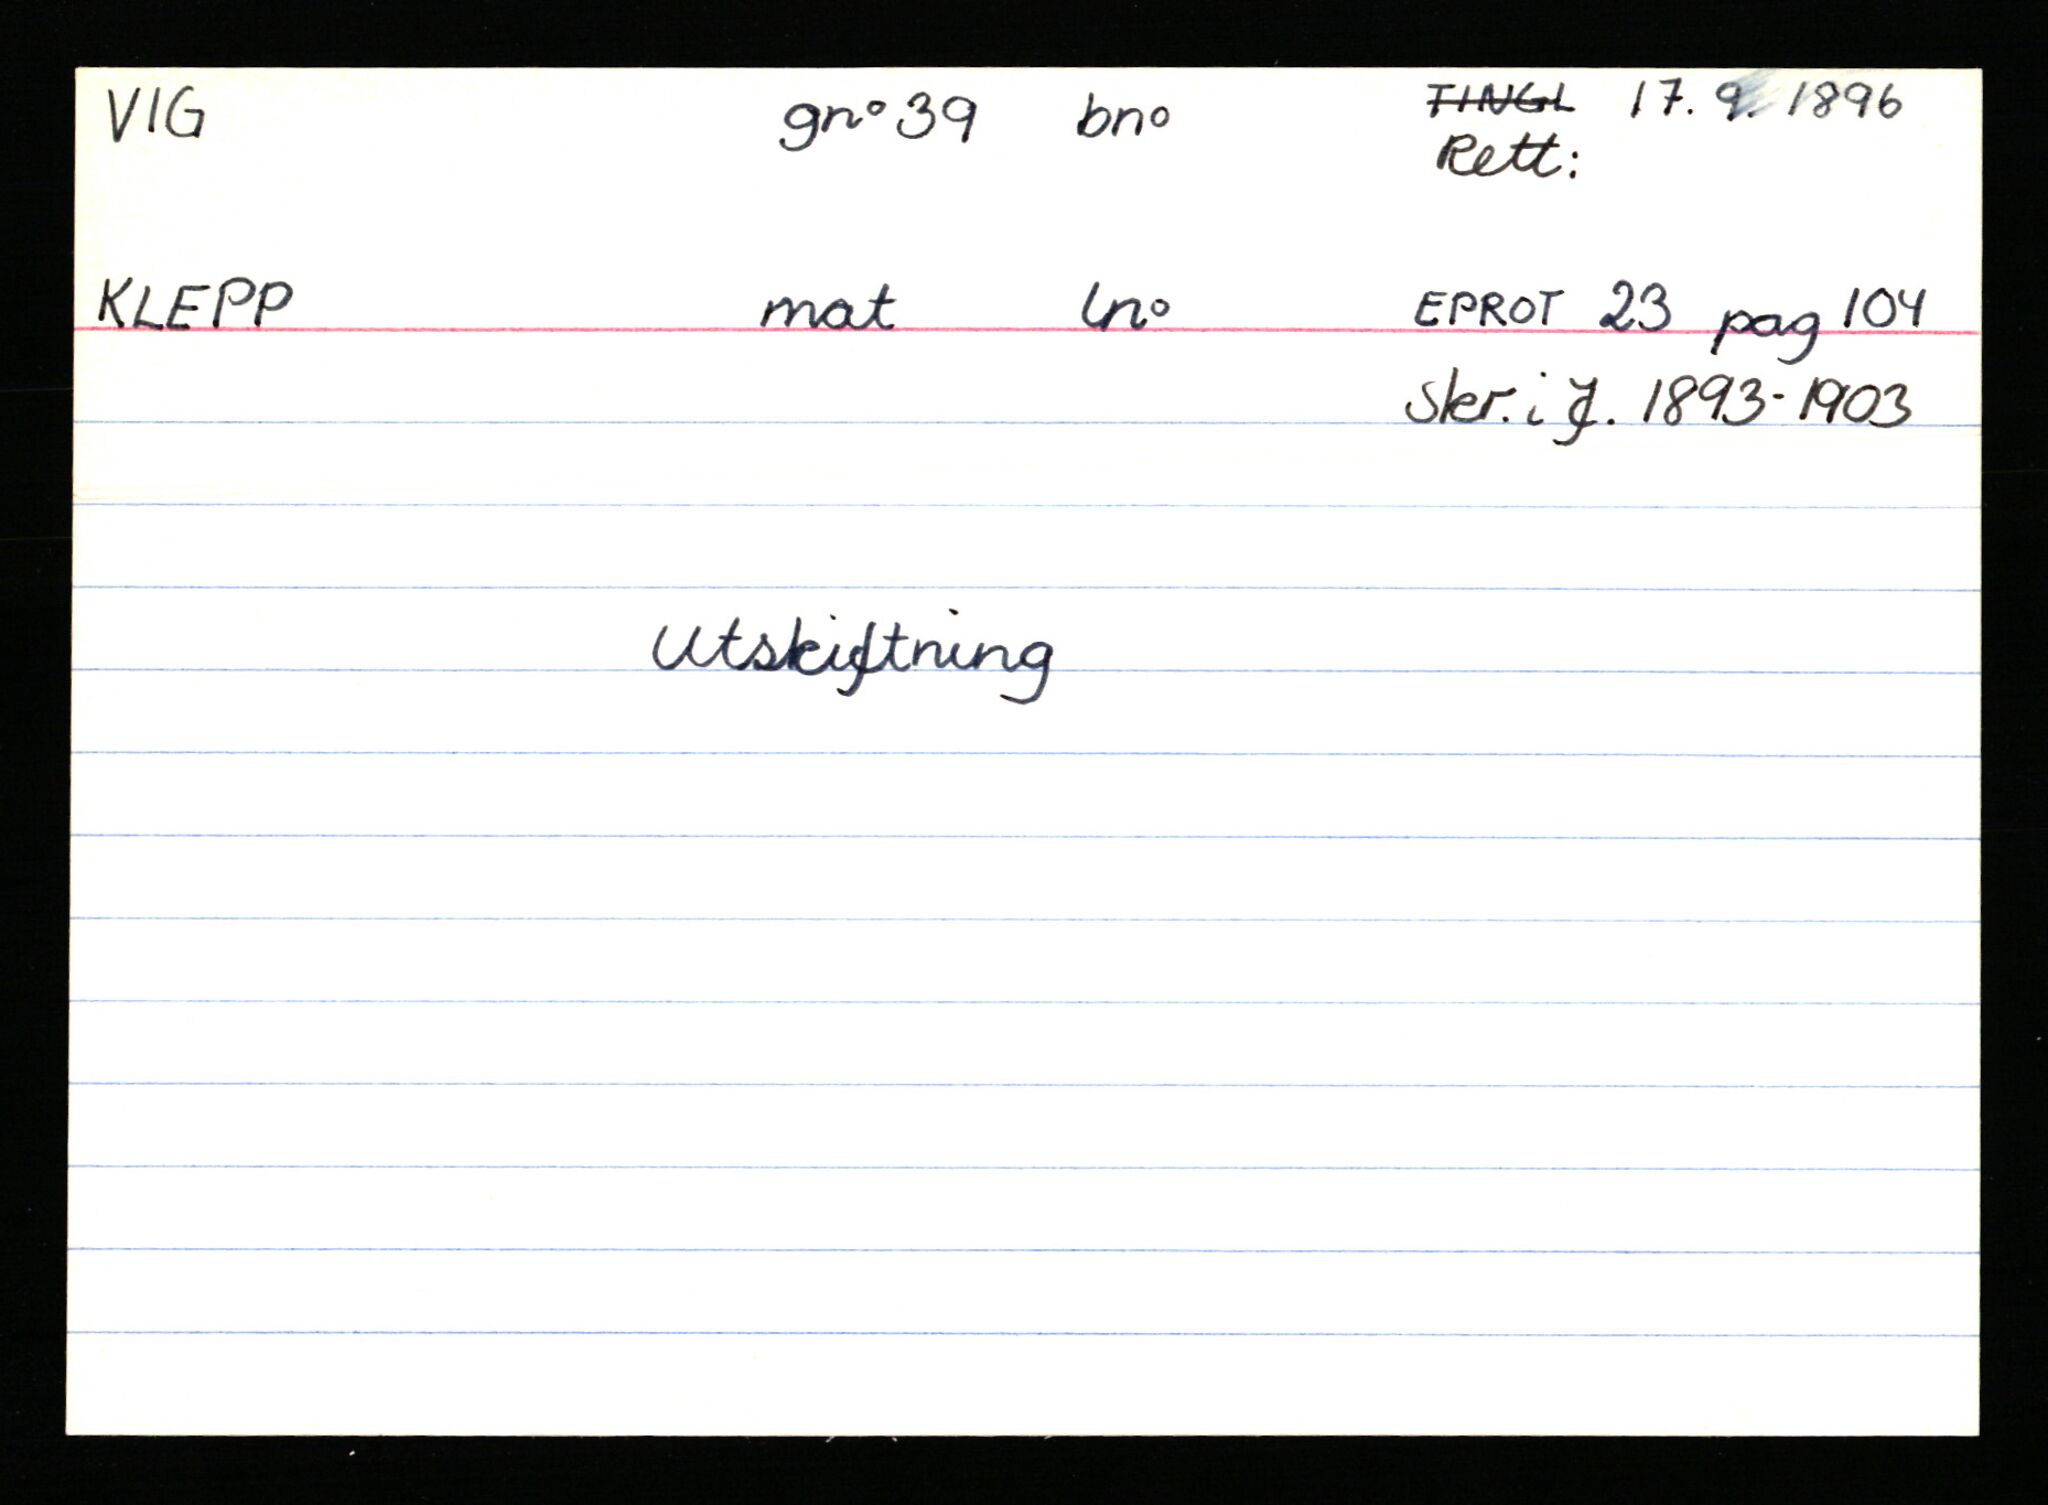 VIG gnº 39 bnº TINGL 17. 9. 1896
Rett:
KLEPP mat lnº EPROT 23 pag 104
Skr. i J. 1893-1903
Utskiftning